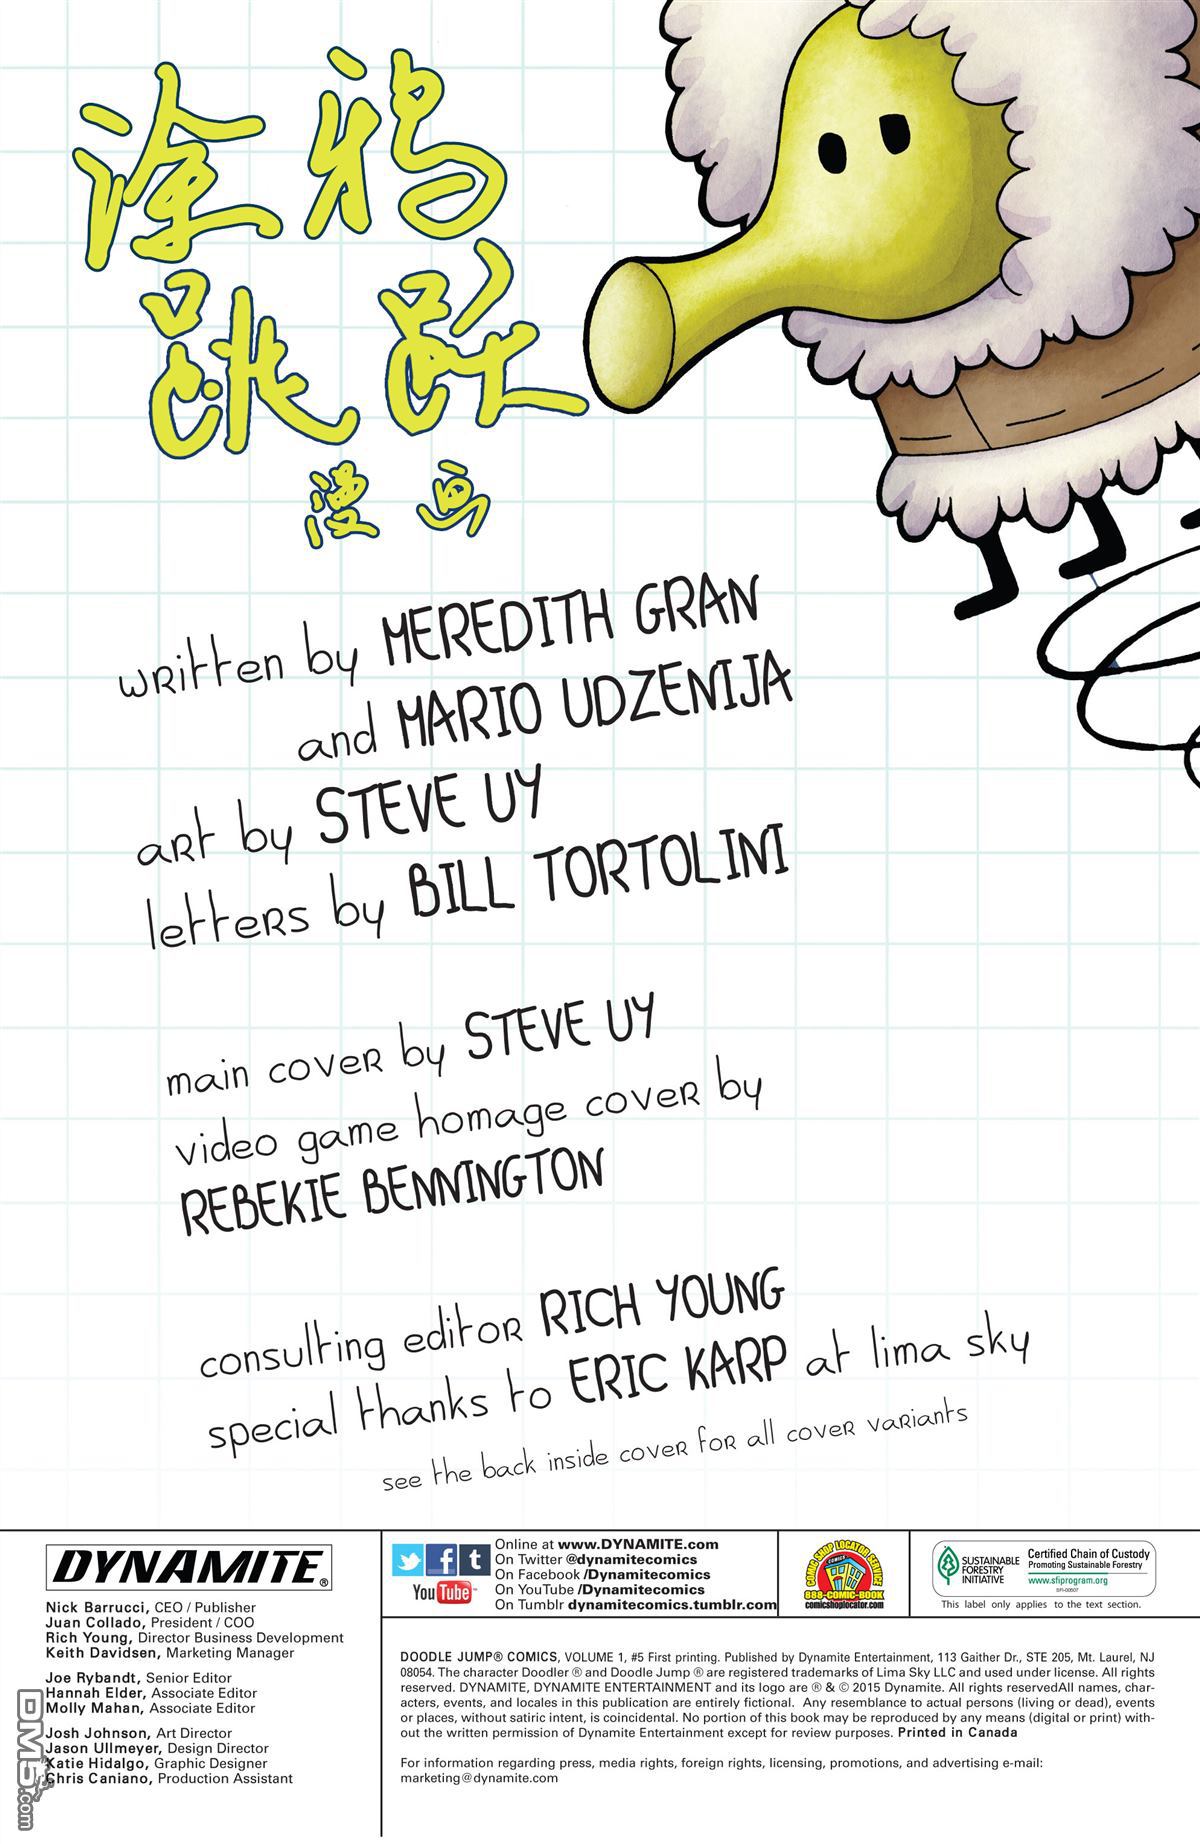 涂鸦
跳跃
漫画
written by MEREDITH GRAN
and MARIO UDZENIJA
art by STEVE UY
letters by BILL TORTOLINI
main cover by STEVE UY
video game homage cover by
REBEKIE BENNINGTON
consulting editor RICH YOUNG
special thanks to ERIC KARP at lima sky
see the back inside cover for all cover variants
DYNAMITE®
Nick Barrucci, CEO / Publisher
Juan Collado, President / COO
Rich Young, Director Business Development
Keith Davidsen, Marketing Manager
Joe Rybandt, Senior Editor
Hannah Elder, Associate Editor
Molly Mahan, Associate Editor
Josh Johnson, Art Director
Jason Ullmeyer, Design Director
Katie Hidalgo, Graphic Designer
Chris Caniano, Production Assistant
DM5.com
You Tube
Online at www.DYNAMITE.com
On Twitter @dynamitecomics
On Facebook /Dynamitecomics
On YouTube /Dynamitecomics
On Tumblr dynamitecomics.tumblr.com
COMIC SHOP LOCATOR SERVICE
COMICS
888-COMIC-BOOK
comicshoplocator.com
SUSTAINABLE
FORESTRY
INITIATIVE
Certified Chain of Custody
Promoting Sustainable Forestry
www.sfiprogram.org
SFI-00507
This label only applies to the text section.
DOODLE JUMP® COMICS, VOLUME 1, #5 First printing. Published by Dynamite Entertainment, 113 Gaither Dr., STE 205, Mt. Laurel, NJ
08054. The character Doodler ® and Doodle Jump ® are registered trademarks of Lima Sky LLC and used under license. All rights
reserved. DYNAMITE, DYNAMITE ENTERTAINMENT and its logo are ® & © 2015 Dynamite. All rights reservedAll names, char-
acters, events, and locales in this publication are entirely fictional. Any resemblance to actual persons (living or dead), events
or places, without satiric intent, is coincidental. No portion of this book may be reproduced by any means (digital or print) with-
out the written permission of Dynamite Entertainment except for review purposes. Printed in Canada
For information regarding press, media rights, foreign rights, licensing, promotions, and advertising e-mail:
marketing@dynamite.com